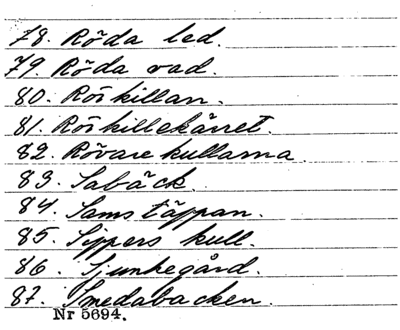 78. Röda led.
79. Röda vad.
80. Röskillan.
81. Röskillekärret.
82. Rövarekullarna
83. Sabäck.
84. Samstäppan.
85. Sippers kull.
86. Sjunkegård.
87. Smedabacken.
Nr 5694.